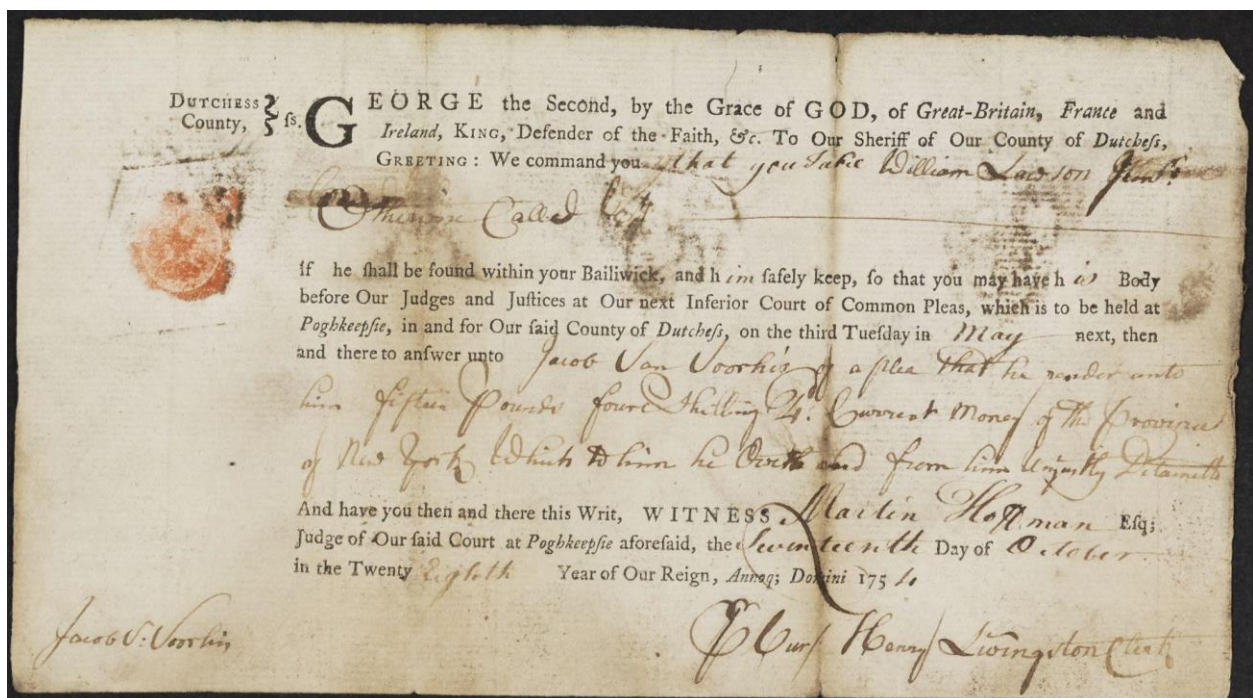 DUTCHESS County, ss. GEORGE the Second, by the Grace of GOD, of Great-Britain, France and
Ireland, KING, Defender of the Faith, &c. To Our Sheriff of Our County of Dutchess,
GREETING: We command you that you Take William Lawson Junr.
Otherwise Called Capt
if he ſhall be found within your Bailiwick, and him ſafely keep, ſo that you may have his Body
before Our Judges and Juſtices at Our next Inferior Court of Common Pleas, which is to be held at
Poghkeepſie, in and for Our ſaid County of Dutcheſs, on the third Tueſday in May next, then
and there to anſwer unto Jacob Van Voorhis of a plea that he render unto
him fifteen Pounds foure Shilling 4d. Current Money of the Province
of New York Which to him he Oweth and from him unjustly Detaineth
And have you then and there this Writ, WITNESS Martin Hoffman Eſq;
Judge of Our ſaid Court at Poghkeepſie aforeſaid, the Seventeenth Day of October
in the Twenty Eighth Year of Our Reign, Annoq; Domini 1754
Jacob V: Voorhis
Pr Cur/ Henry Livingston Clerk